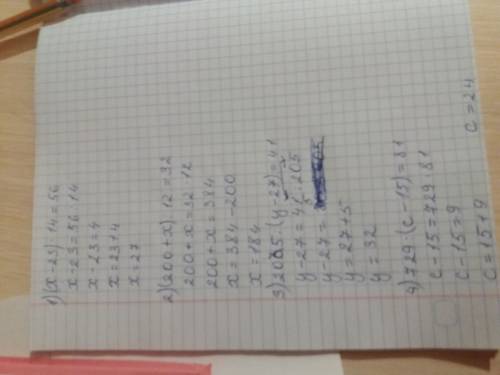 1) (x-23)·14=56
x-23=56:14
x-23=4
x=23+4
x=27
2) (200+x):12=32
200+x=32·12
200+x=384
x=384-200
x=184
3) 205:(y-27)=41
y-27=
y-27=
y=27+5
y=32
4) 729:(c-15)=81
c-15=729:81
c-15=9
c=15+9
c=24